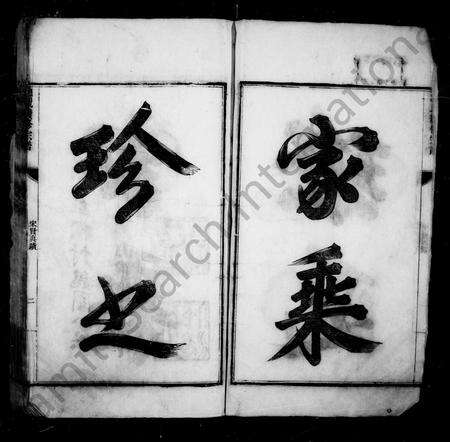 家乘
珍之
宋賢真蹟
二
FamilySearch International